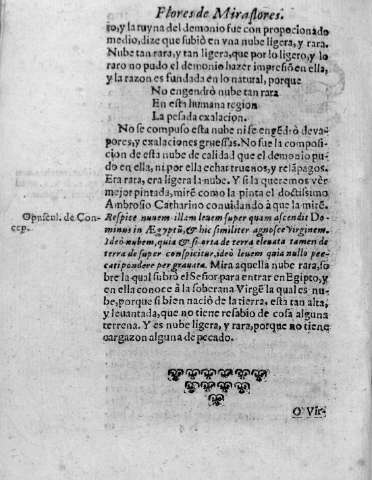 Flores de Miraflores.
to, y la ruyna del demonio fue con proporcionado
medio, dize que subiò en vna nube ligera, y rara.
Nube tan rara, y tan ligera, que por lo ligero, y lo
raro no pudo el demonio hazer impresiõ en ella,
y la razon es fundada en lo natural, porque
No engendrò nube tan rara
En esta humana region
La pesada exalacion.
No se compuso esta nube ni se engẽdrò deva-
pores, y exalaciones gruessas. No fue la composi-
cion de esta nube de calidad que el demonio pu-
do en ella, ni por ella echar truenos, y relápagos.
Era rara, era ligera la nube. Y si la queremos vèr
mejor pintada, mirẽ como la pinta el doctissimo
Ambrosio Catharino conuidando à que la mirẽ.
Opuscul. de Con-
cep.
Respice nuuem illam leuem super quam ascendit Do-
minus in Ægyptũ, & hic similiter agnosce Virginem.
Ideò nubem, quia & si orta de terra eleuata tamen de
terra desuper conspicitur, ideò leuem quia nullo pec-
cati pondere pergrauata. Mira aquella nube rara, so-
bre la qual subiò el Señor para entrar en Egipto, y
en ella conoce à la soberana Virgẽ la qual es nu-
be, porque si bien naciò de la tierra, esta tan alta,
y leuantada, que no tiene resabio de cosa alguna
terrena. Y es nube ligera, y rara, porque no tiene
cargazon alguna de pecado.
O Vir-